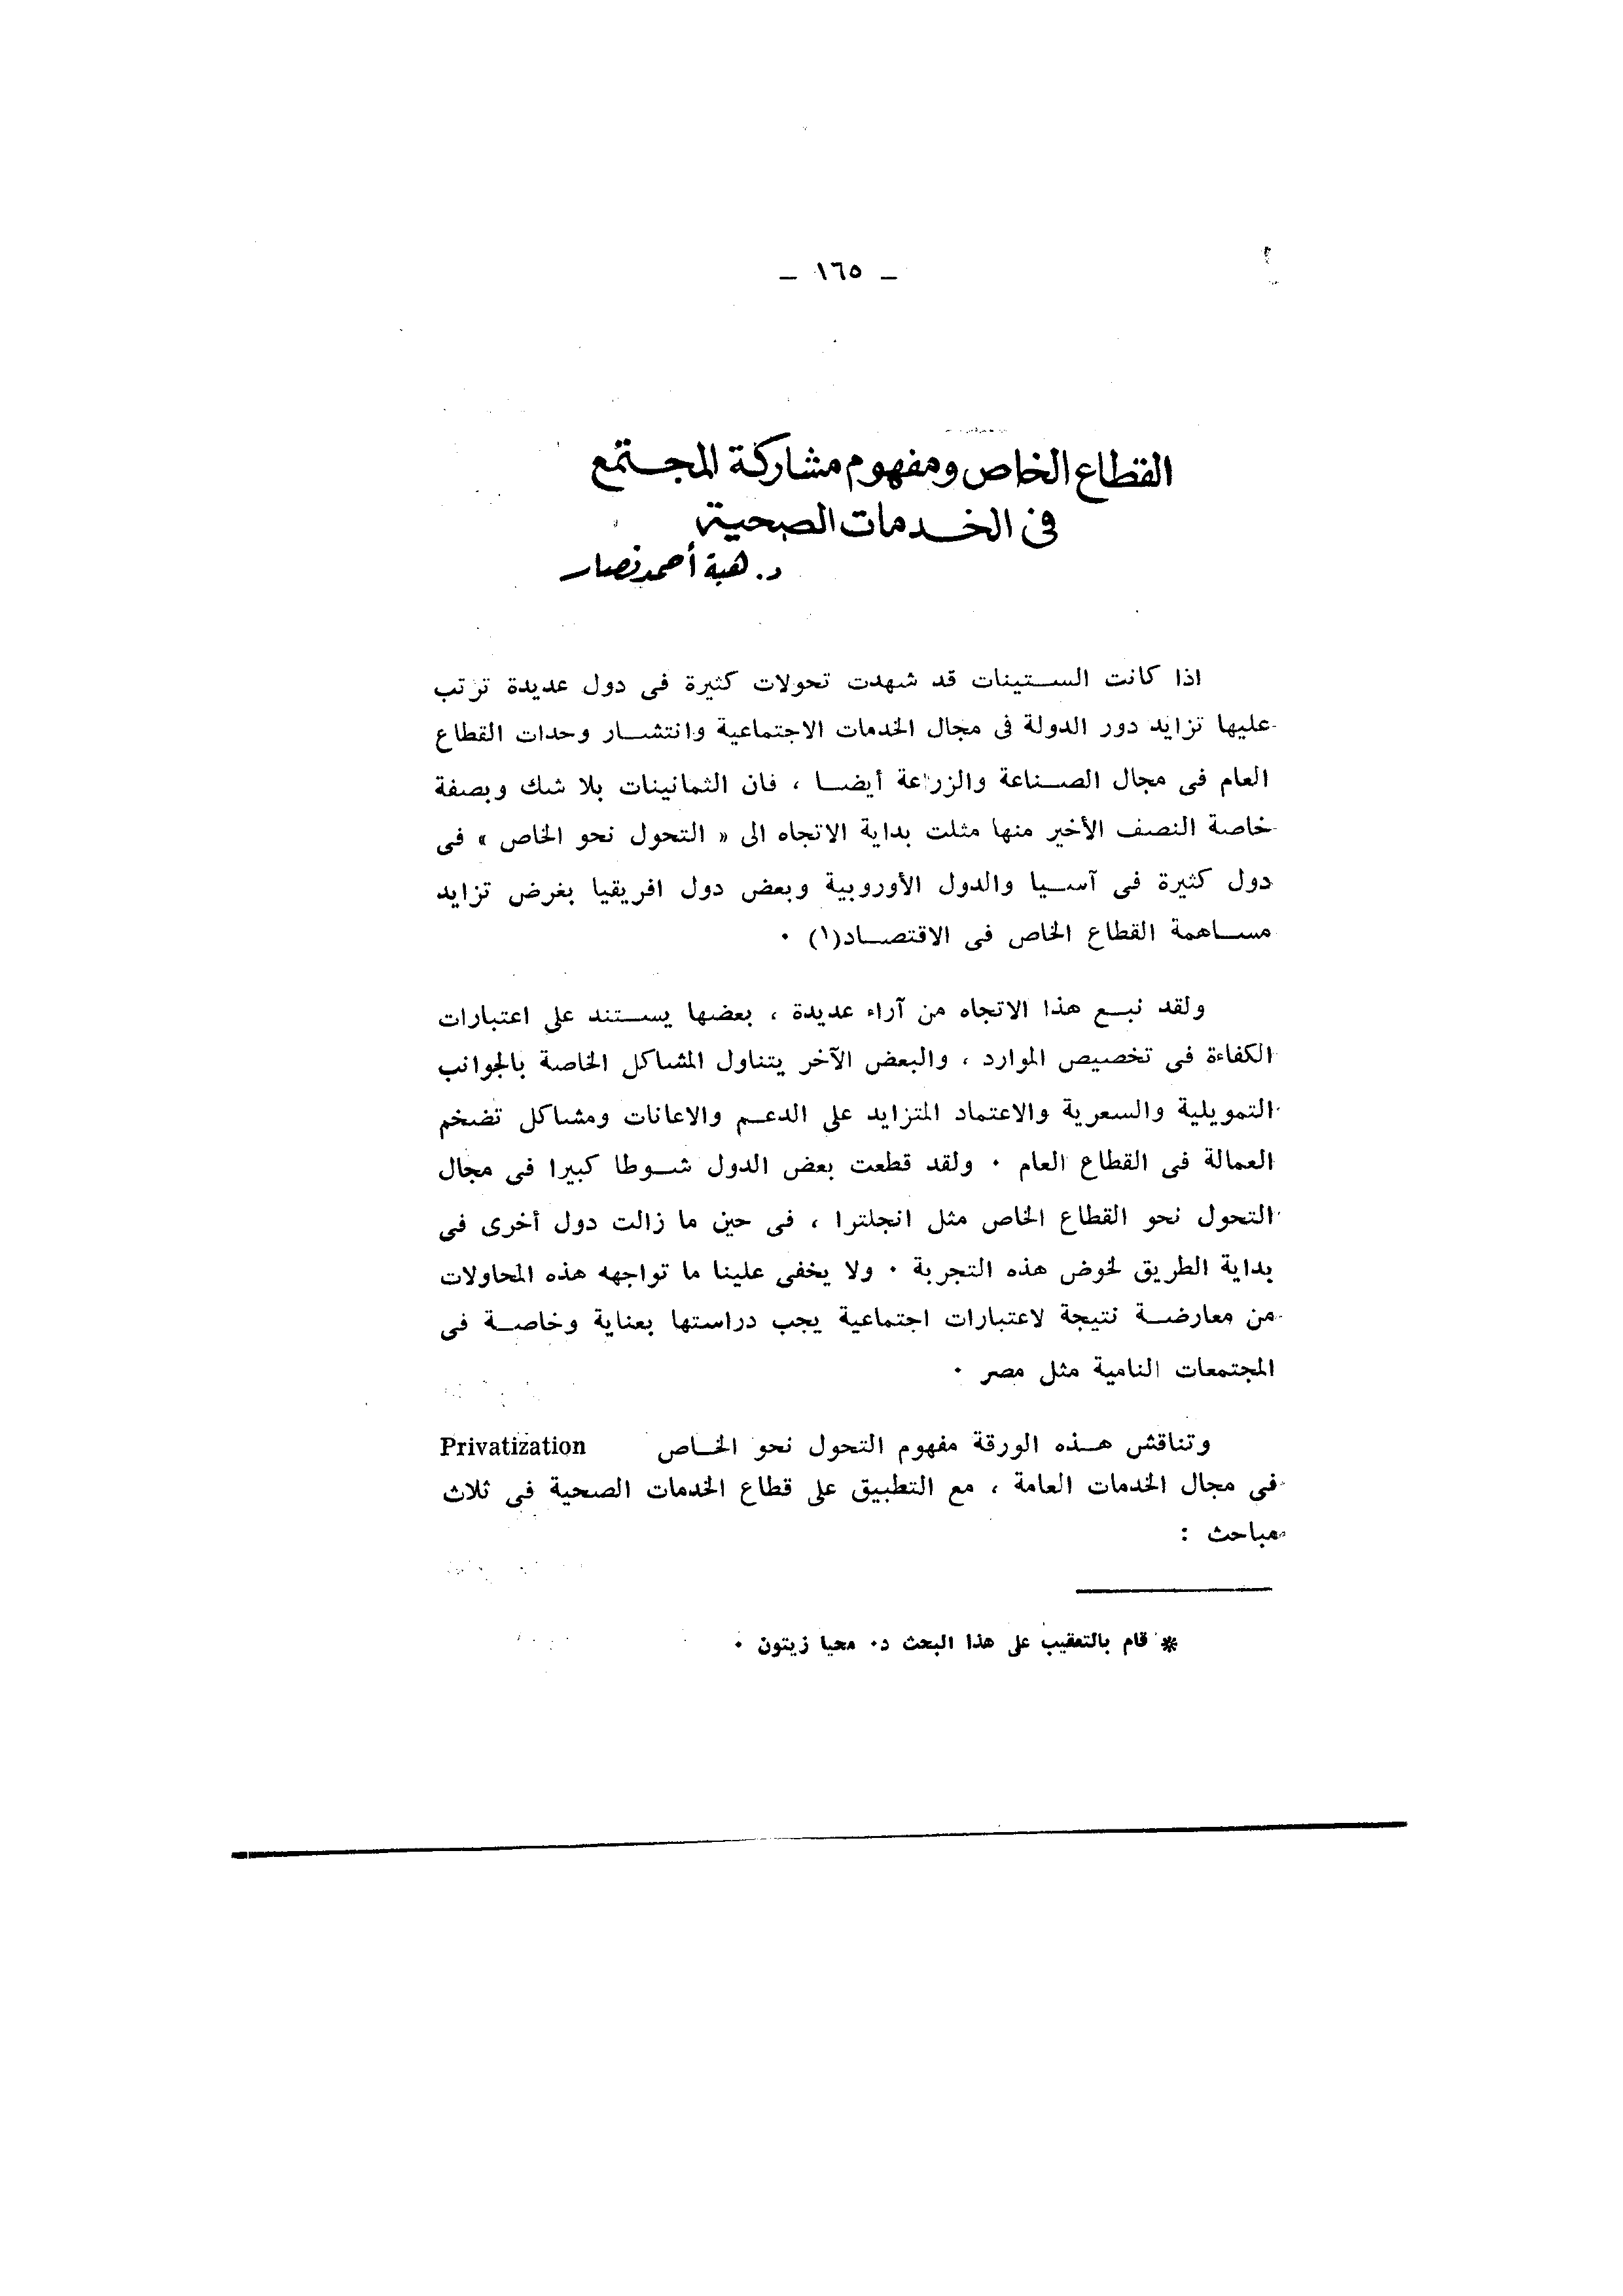 – ١٦٥ –
القطاع الخاص ومفهوم مشاركة المجتمع
فى الخدمات الصحية
د. هبة أحمد نصار
اذا كانت الستينات قد شهدت تحولات كثيرة فى دول عديدة ترتب
عليها تزايد دور الدولة فى مجال الخدمات الاجتماعية وانتشار وحدات القطاع
العام فى مجال الصناعة والزراعة أيضا ، فان الثمانينات بلا شك وبصفة
خاصة النصف الأخير منها مثلت بداية الاتجاه الى « التحول نحو الخاص » فى
دول كثيرة فى آسيا والدول الأوروبية وبعض دول افريقيا بغرض تزايد
مساهمة القطاع الخاص فى الاقتصاد(١) ٠
ولقد نبع هذا الاتجاه من آراء عديدة ، بعضها يستند على اعتبارات
الكفاءة فى تخصيص الموارد ، والبعض الآخر يتناول المشاكل الخاصة بالجوانب
التمويلية والسعرية والاعتماد المتزايد على الدعم والاعانات ومشاكل تضخم
العمالة فى القطاع العام ٠ ولقد قطعت بعض الدول شوطا كبيرا فى مجال
التحول نحو القطاع الخاص مثل انجلترا ، فى حين ما زالت دول أخرى فى
بداية الطريق لخوض هذه التجربة ٠ ولا يخفى علينا ما تواجهه هذه المحاولات
من معارضة نتيجة لاعتبارات اجتماعية يجب دراستها بعناية وخاصة فى
المجتمعات النامية مثل مصر ٠
وتناقش هذه الورقة مفهوم التحول نحو الخاص Privatization
فى مجال الخدمات العامة ، مع التطبيق على قطاع الخدمات الصحية فى ثلاث
مباحث :
* قام بالتعقيب على هذا البحث د٠ محيا زيتون ٠